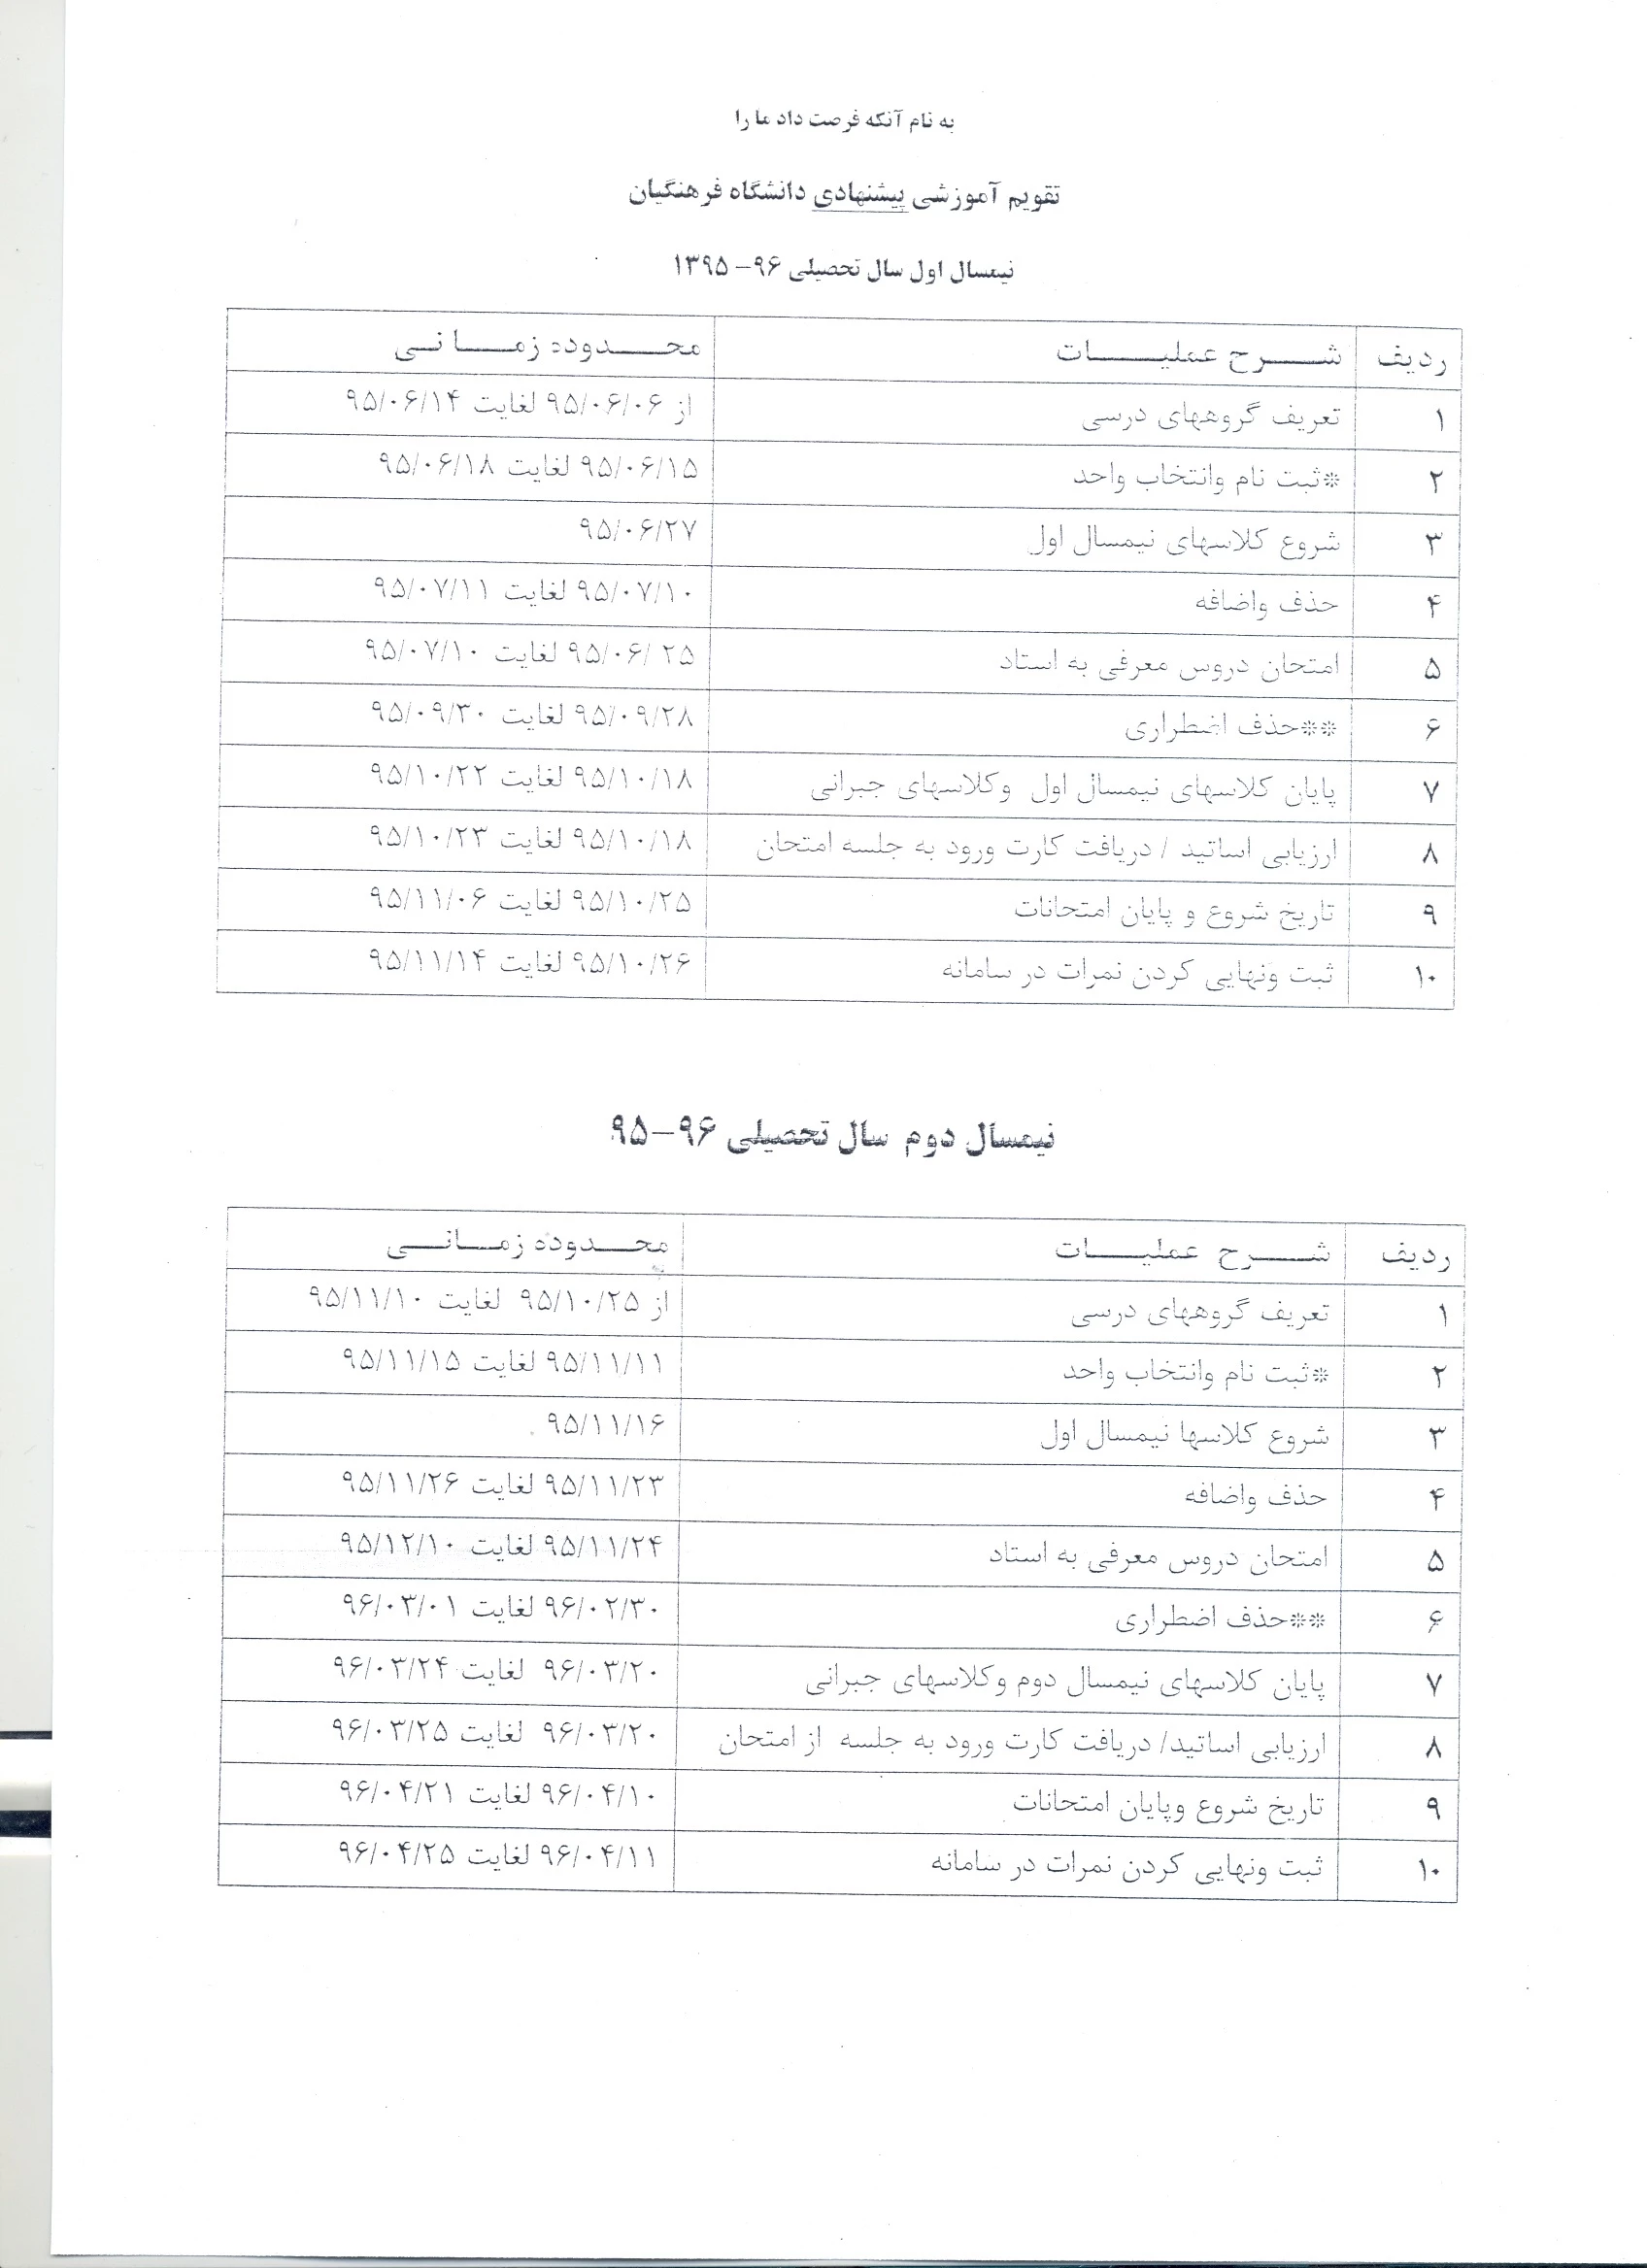 به نام آنکه فرصت داد ما را
تقویم آموزشی پیشنهادی دانشگاه فرهنگیان
نیمسال اول سال تحصیلی ۹۶–۱۳۹۵
ردیف شرح عملیات محدوده زمانی
۱ تعریف گروههای درسی از ۹۵/۰۶/۰۶ لغایت ۹۵/۰۶/۱۴
۲ *ثبت نام وانتخاب واحد ۹۵/۰۶/۱۵ لغایت ۹۵/۰۶/۱۸
۳ شروع کلاسهای نیمسال اول ۹۵/۰۶/۲۷
۴ حذف واضافه ۹۵/۰۷/۱۰ لغایت ۹۵/۰۷/۱۱
۵ امتحان دروس معرفی به استاد ۹۵/۰۶/ ۲۵ لغایت ۹۵/۰۷/۱۰
۶ **حذف اضطراری ۹۵/۰۹/۲۸ لغایت ۹۵/۰۹/۳۰
۷ پایان کلاسهای نیمسال اول وکلاسهای جبرانی ۹۵/۱۰/۱۸ لغایت ۹۵/۱۰/۲۲
۸ ارزیابی اساتید / دریافت کارت ورود به جلسه امتحان ۹۵/۱۰/۱۸ لغایت ۹۵/۱۰/۲۳
۹ تاریخ شروع و پایان امتحانات ۹۵/۱۰/۲۵ لغایت ۹۵/۱۱/۰۶
۱۰ ثبت ونهایی کردن نمرات در سامانه ۹۵/۱۰/۲۶ لغایت ۹۵/۱۱/۱۴
نیمسال دوم سال تحصیلی ۹۶–۹۵
ردیف شرح عملیات محدوده زمانی
۱ تعریف گروههای درسی از ۹۵/۱۰/۲۵ لغایت ۹۵/۱۱/۱۰
۲ *ثبت نام وانتخاب واحد ۹۵/۱۱/۱۱ لغایت ۹۵/۱۱/۱۵
۳ شروع کلاسها نیمسال اول ۹۵/۱۱/۱۶
۴ حذف واضافه ۹۵/۱۱/۲۳ لغایت ۹۵/۱۱/۲۶
۵ امتحان دروس معرفی به استاد ۹۵/۱۱/۲۴ لغایت ۹۵/۱۲/۱۰
۶ **حذف اضطراری ۹۶/۰۲/۳۰ لغایت ۹۶/۰۳/۰۱
۷ پایان کلاسهای نیمسال دوم وکلاسهای جبرانی ۹۶/۰۳/۲۰ لغایت ۹۶/۰۳/۲۴
۸ ارزیابی اساتید/ دریافت کارت ورود به جلسه از امتحان ۹۶/۰۳/۲۰ لغایت ۹۶/۰۳/۲۵
۹ تاریخ شروع وپایان امتحانات ۹۶/۰۴/۱۰ لغایت ۹۶/۰۴/۲۱
۱۰ ثبت ونهایی کردن نمرات در سامانه ۹۶/۰۴/۱۱ لغایت ۹۶/۰۴/۲۵